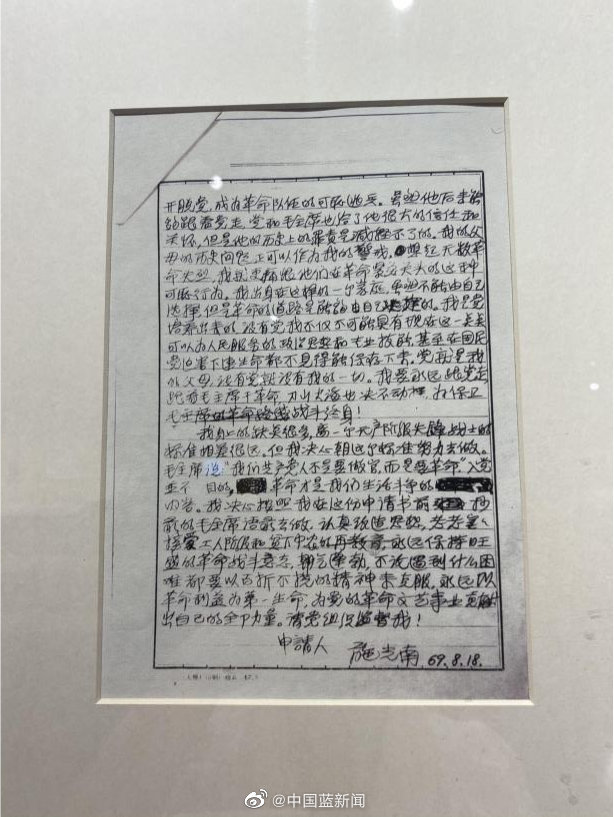 开脱党,成为革命队伍的可耻逃兵。虽然他后来能
够跟着党走,党和毛主席也给了他很大的信任和
关怀,但是他的历史上的罪责是减轻不了的。我的父
母的历史问题正可以作为我的警戒。想起无数革
命先烈,我
可耻行为。我出身在这样的一个家庭,虽然不能由自己
选择,但是革命的道路是能够由自己决择的。我是党
培养出来的,没有党我不仅不可能具有现在这一点点
可以为人民服务的政治思想和专业技能,甚至在国民
党迫害下连生命都不见得能保存下来。党就是我
的父母,没有党就没有我的一切。我要永远跟党走,
跟着毛主席干革命,刀山火海也决不动摇,为保卫
毛主席的革命路线战斗终身!
我身上的缺点很多,离一个无产阶级先锋战士的
标准相差很远。但我决心朝这个标准努力去做。
毛主席说:“我们共产党人不是要做官,而是要革命”入党
并不 目的,革命才是我们生活斗争的
内容。我决心按照我在这份申请书前 抄
录的毛主席语录去做,认真改造思想,老老实实
接受工人阶级和贫下中农的再教育,永远保持旺
盛的革命战斗意志,朝气蓬勃,不论遇到什么困
难都要以百折不挠的精神来克服,永远以
革命利益为第一生命,为党的革命文艺事业贡献
出自己的全部力量。请党组织监督我!
申請人 施光南 69.8.18.
@中国蓝新闻